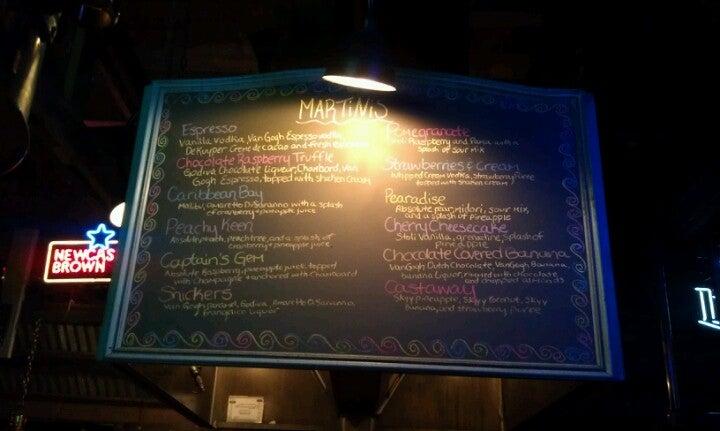 MARTINIS
Espresso
Vanilla Vodka, Van Gogh Espresso vodka,
DeKuyper Creme de cacao and fresh
Chocolate Raspberry Truffle
Godiva Chocolate Liqueur, Chambord, Van
Gogh Espresso, topped with Shaken Cream
Caribbean Bay
Malibu, Amaretto DiSaronno with a splash
of cranberry & pineapple juice
Peachy Keen
Absolut peach, peach tree, and a splash of
cranberry & pineapple juice
Captain's Gem
Absolute Raspberry, pineapple juice, topped
with Champagne & anchored with Chambord
Snickers
Van Gogh Caramel, Godiva, Amaretto DiSaronno,
Frangelico Liquor
Pomegranate
Stoli Raspberry and Pama with a
splash of sour mix
Strawberries & Cream
Whipped Cream Vodka, Strawberry Puree
topped with shaken cream
Pearadise
Absolute pear, midori, sour mix,
and a splash of pineapple
Cherry Cheesecake
Stoli Vanilla, grenadine, splash of
pineapple
Chocolate Covered Banana
Van Gogh Dutch Chocolate, Van Gogh Banana,
Banana Liquor, rimmed with chocolate
and chopped almonds
Castaway
Skyy Pineapple, Skyy Coconut, Skyy
Banana, and strawberry puree
NEWCAS
BROWN